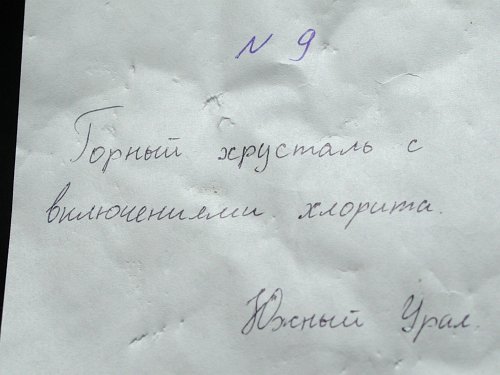 N 9
Горный хрусталь с
включениями хлорита.
Южный Урал.